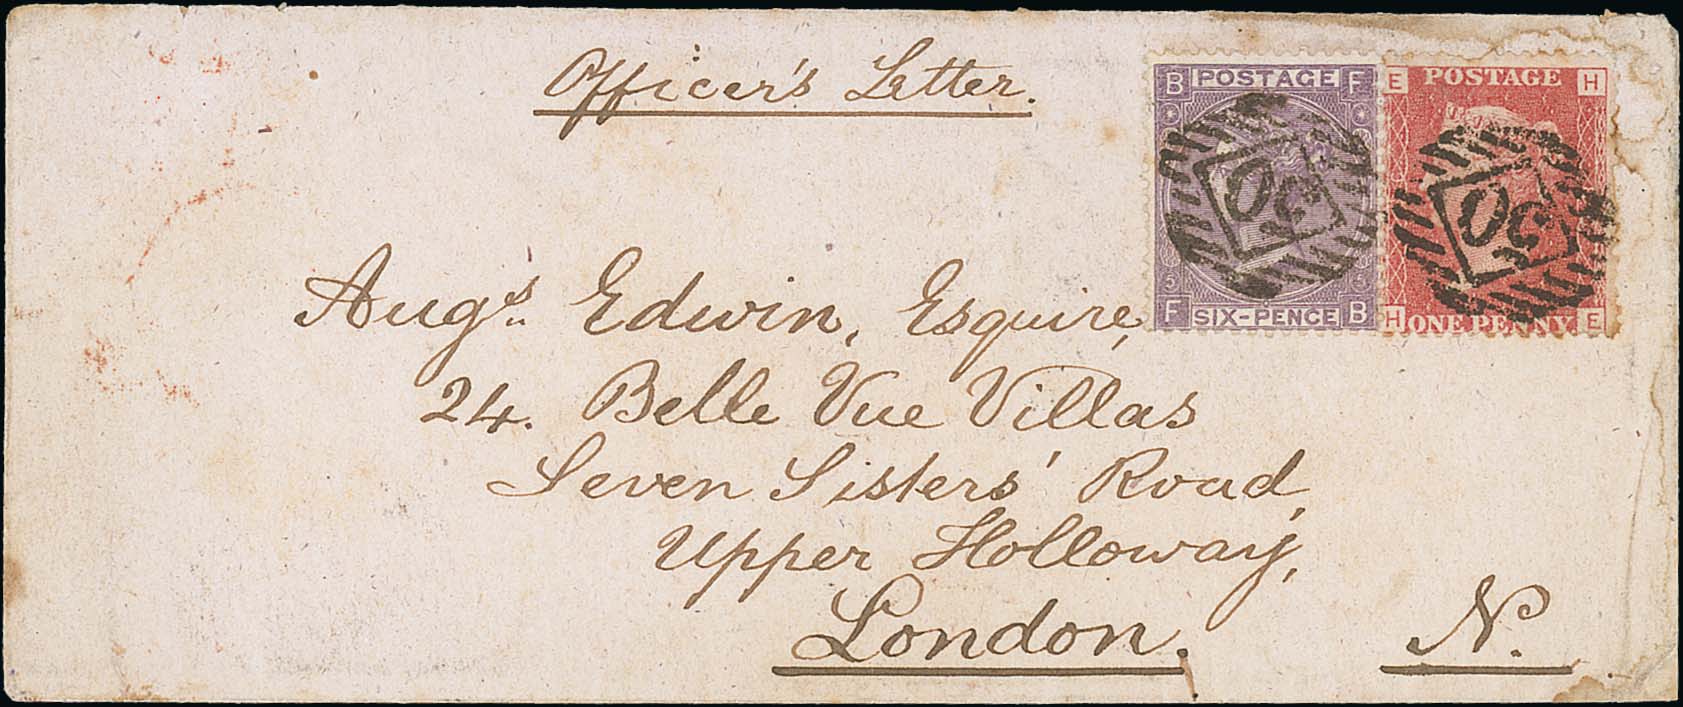 Officer's Letter.
B POSTAGE F
5 5
F SIX-PENCE B
E POSTAGE H
H ONE PENNY E
Augs. Edwin, Esquire,
24. Belle Vue Villas
Seven Sisters' Road,
Upper Holloway,
London. N.